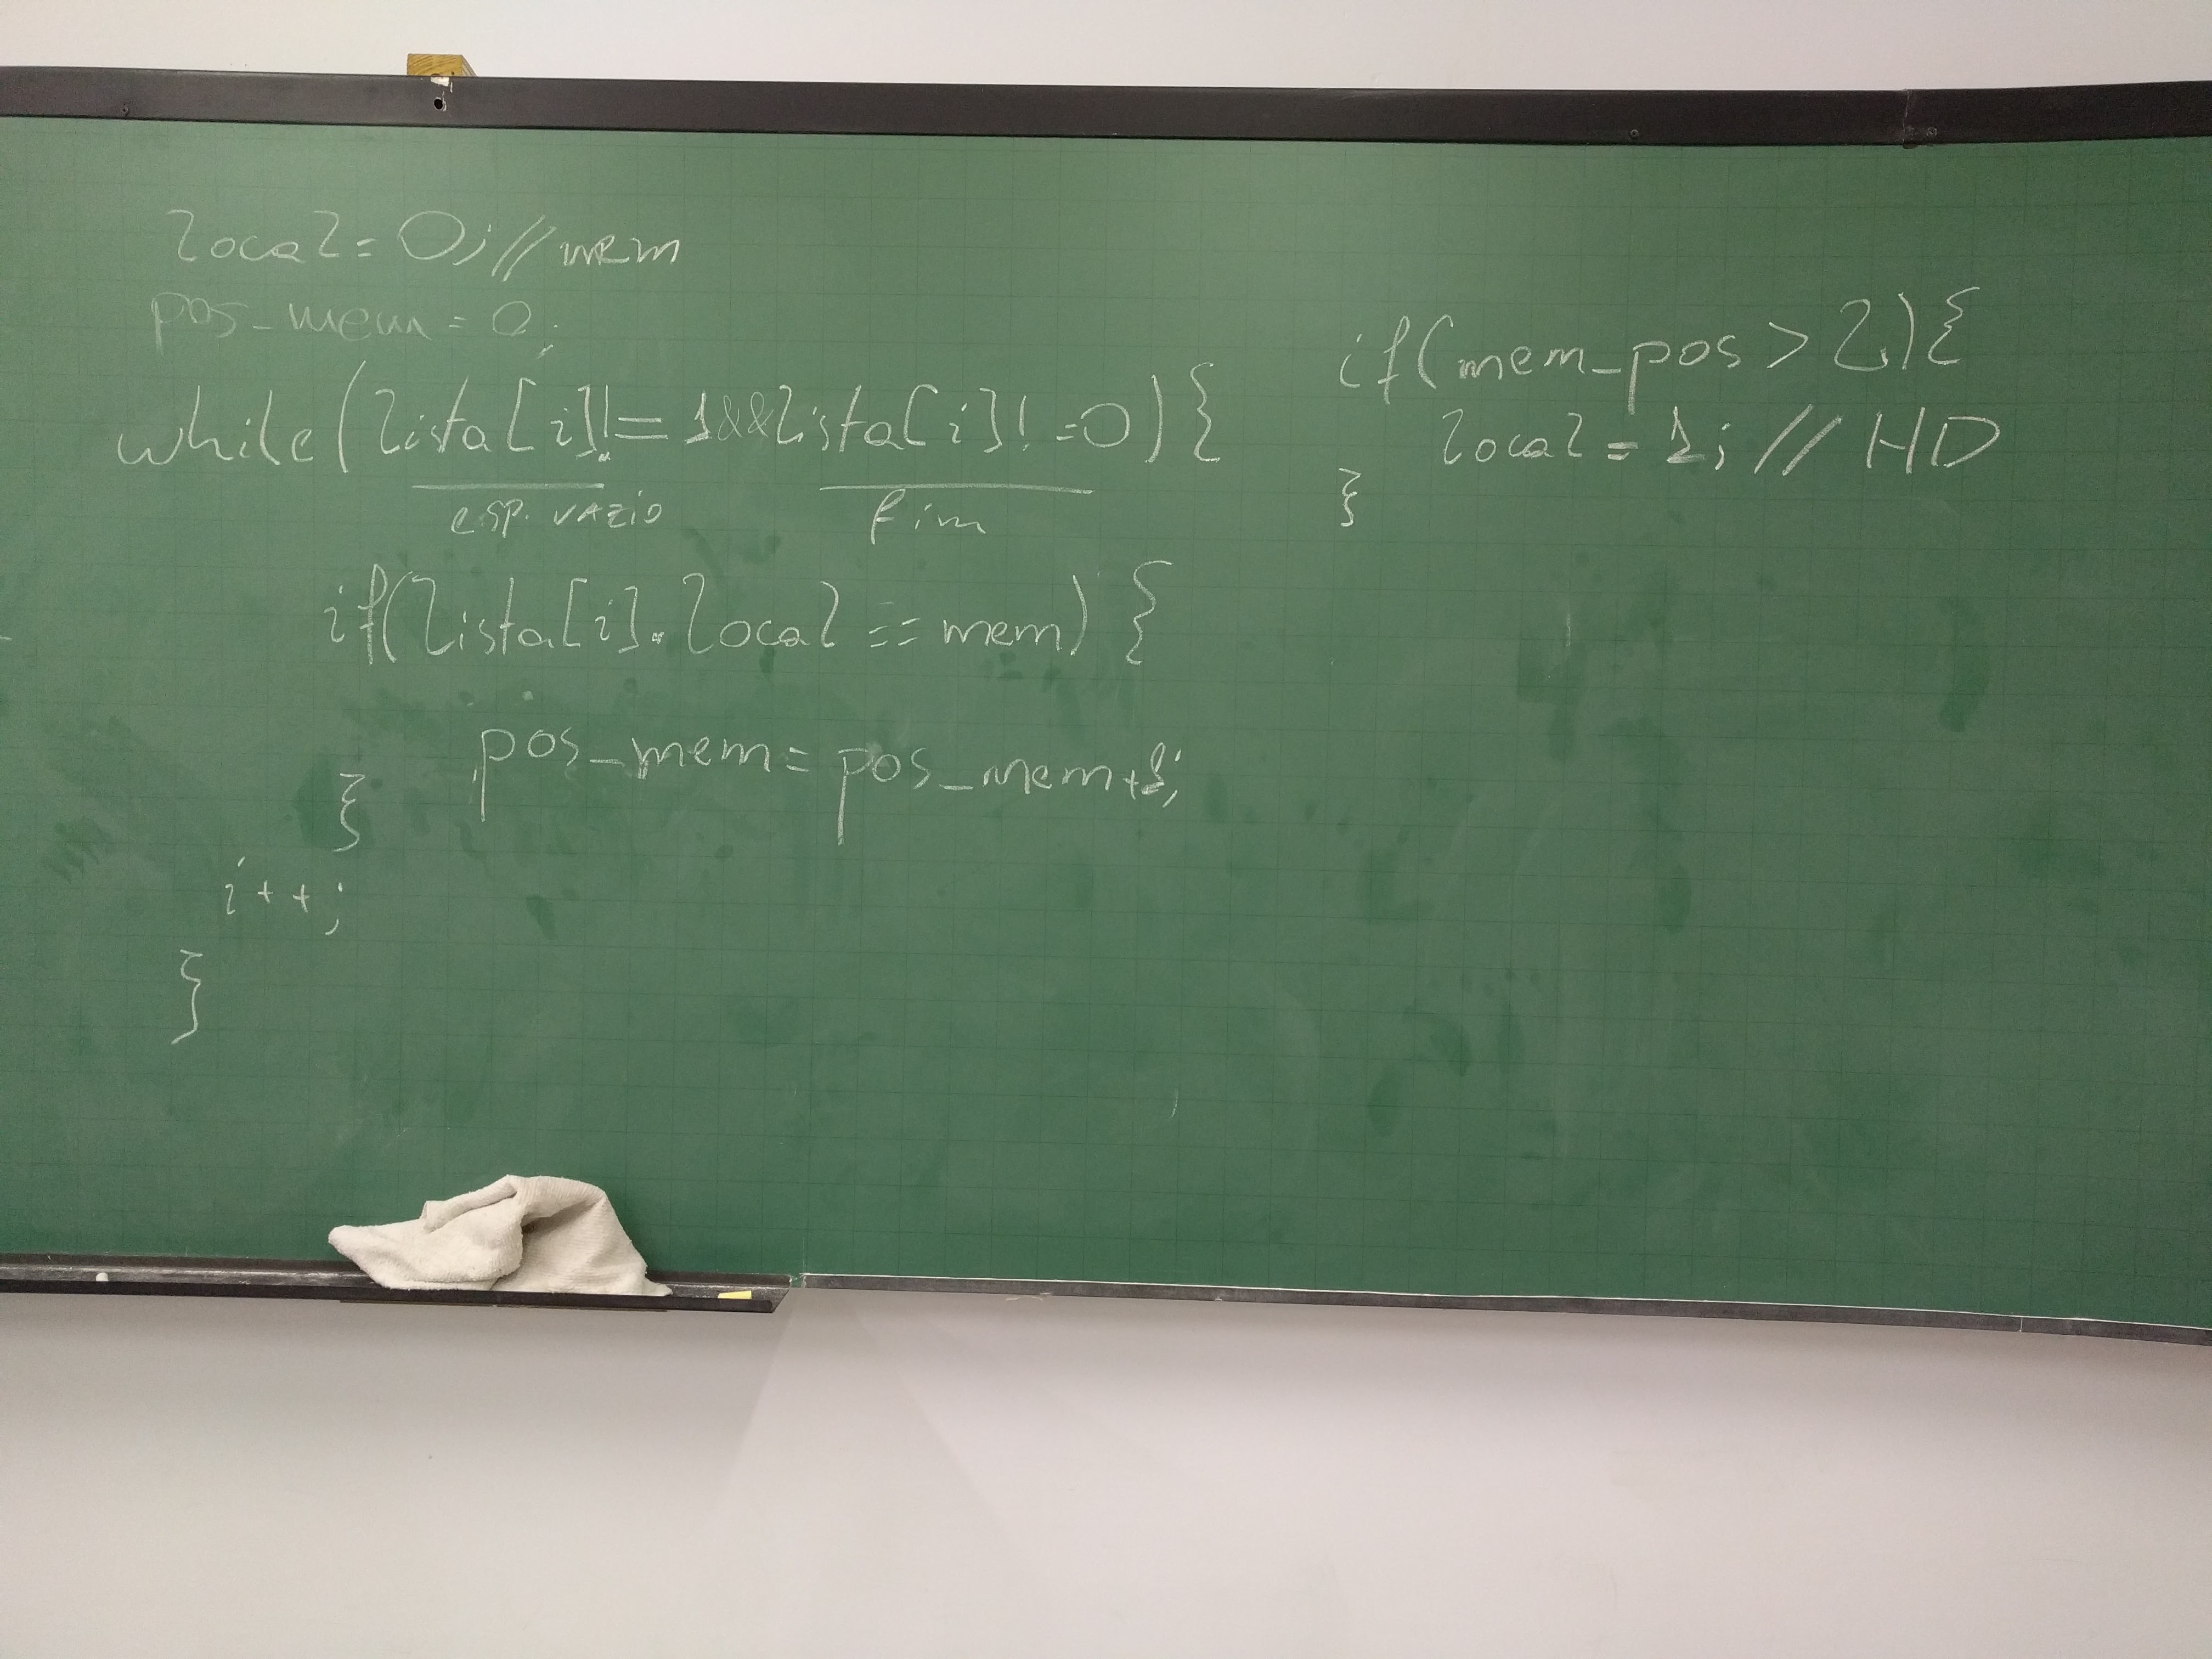 local = 0; // mem
pos_mem = 0;
while(lista[i] != 1 && lista[i] != 0){
esp. VAZIO fim
if(lista[i].local == mem){
pos_mem = pos_mem+1;
}
i++;
}
if(mem_pos > 2){
local = 1; // HD
}